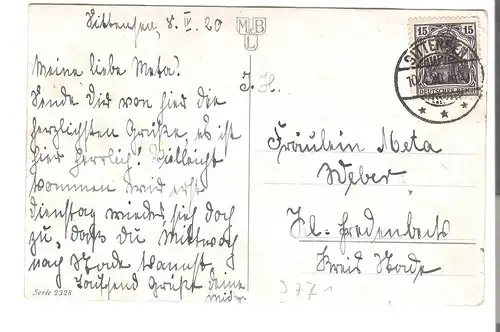 Sittensen, 8. IV. 20
Meine liebe Meta!
Sende Dir von hier die
herzlichsten Grüße, es ist
hier herrlich! Vielleicht
kommen wir erst
Dienstag wieder, sieh doch
zu, daß du Mittwoch
nach Stade kannst.
Tausend Grüße deine
Serie 2328
MJB
L
J. H.
Fräulein Meta
Weber
Kl-Fredenbeck
Kreis Stade
377
15 15
DEUTSCHES REICH
SITTENSEN